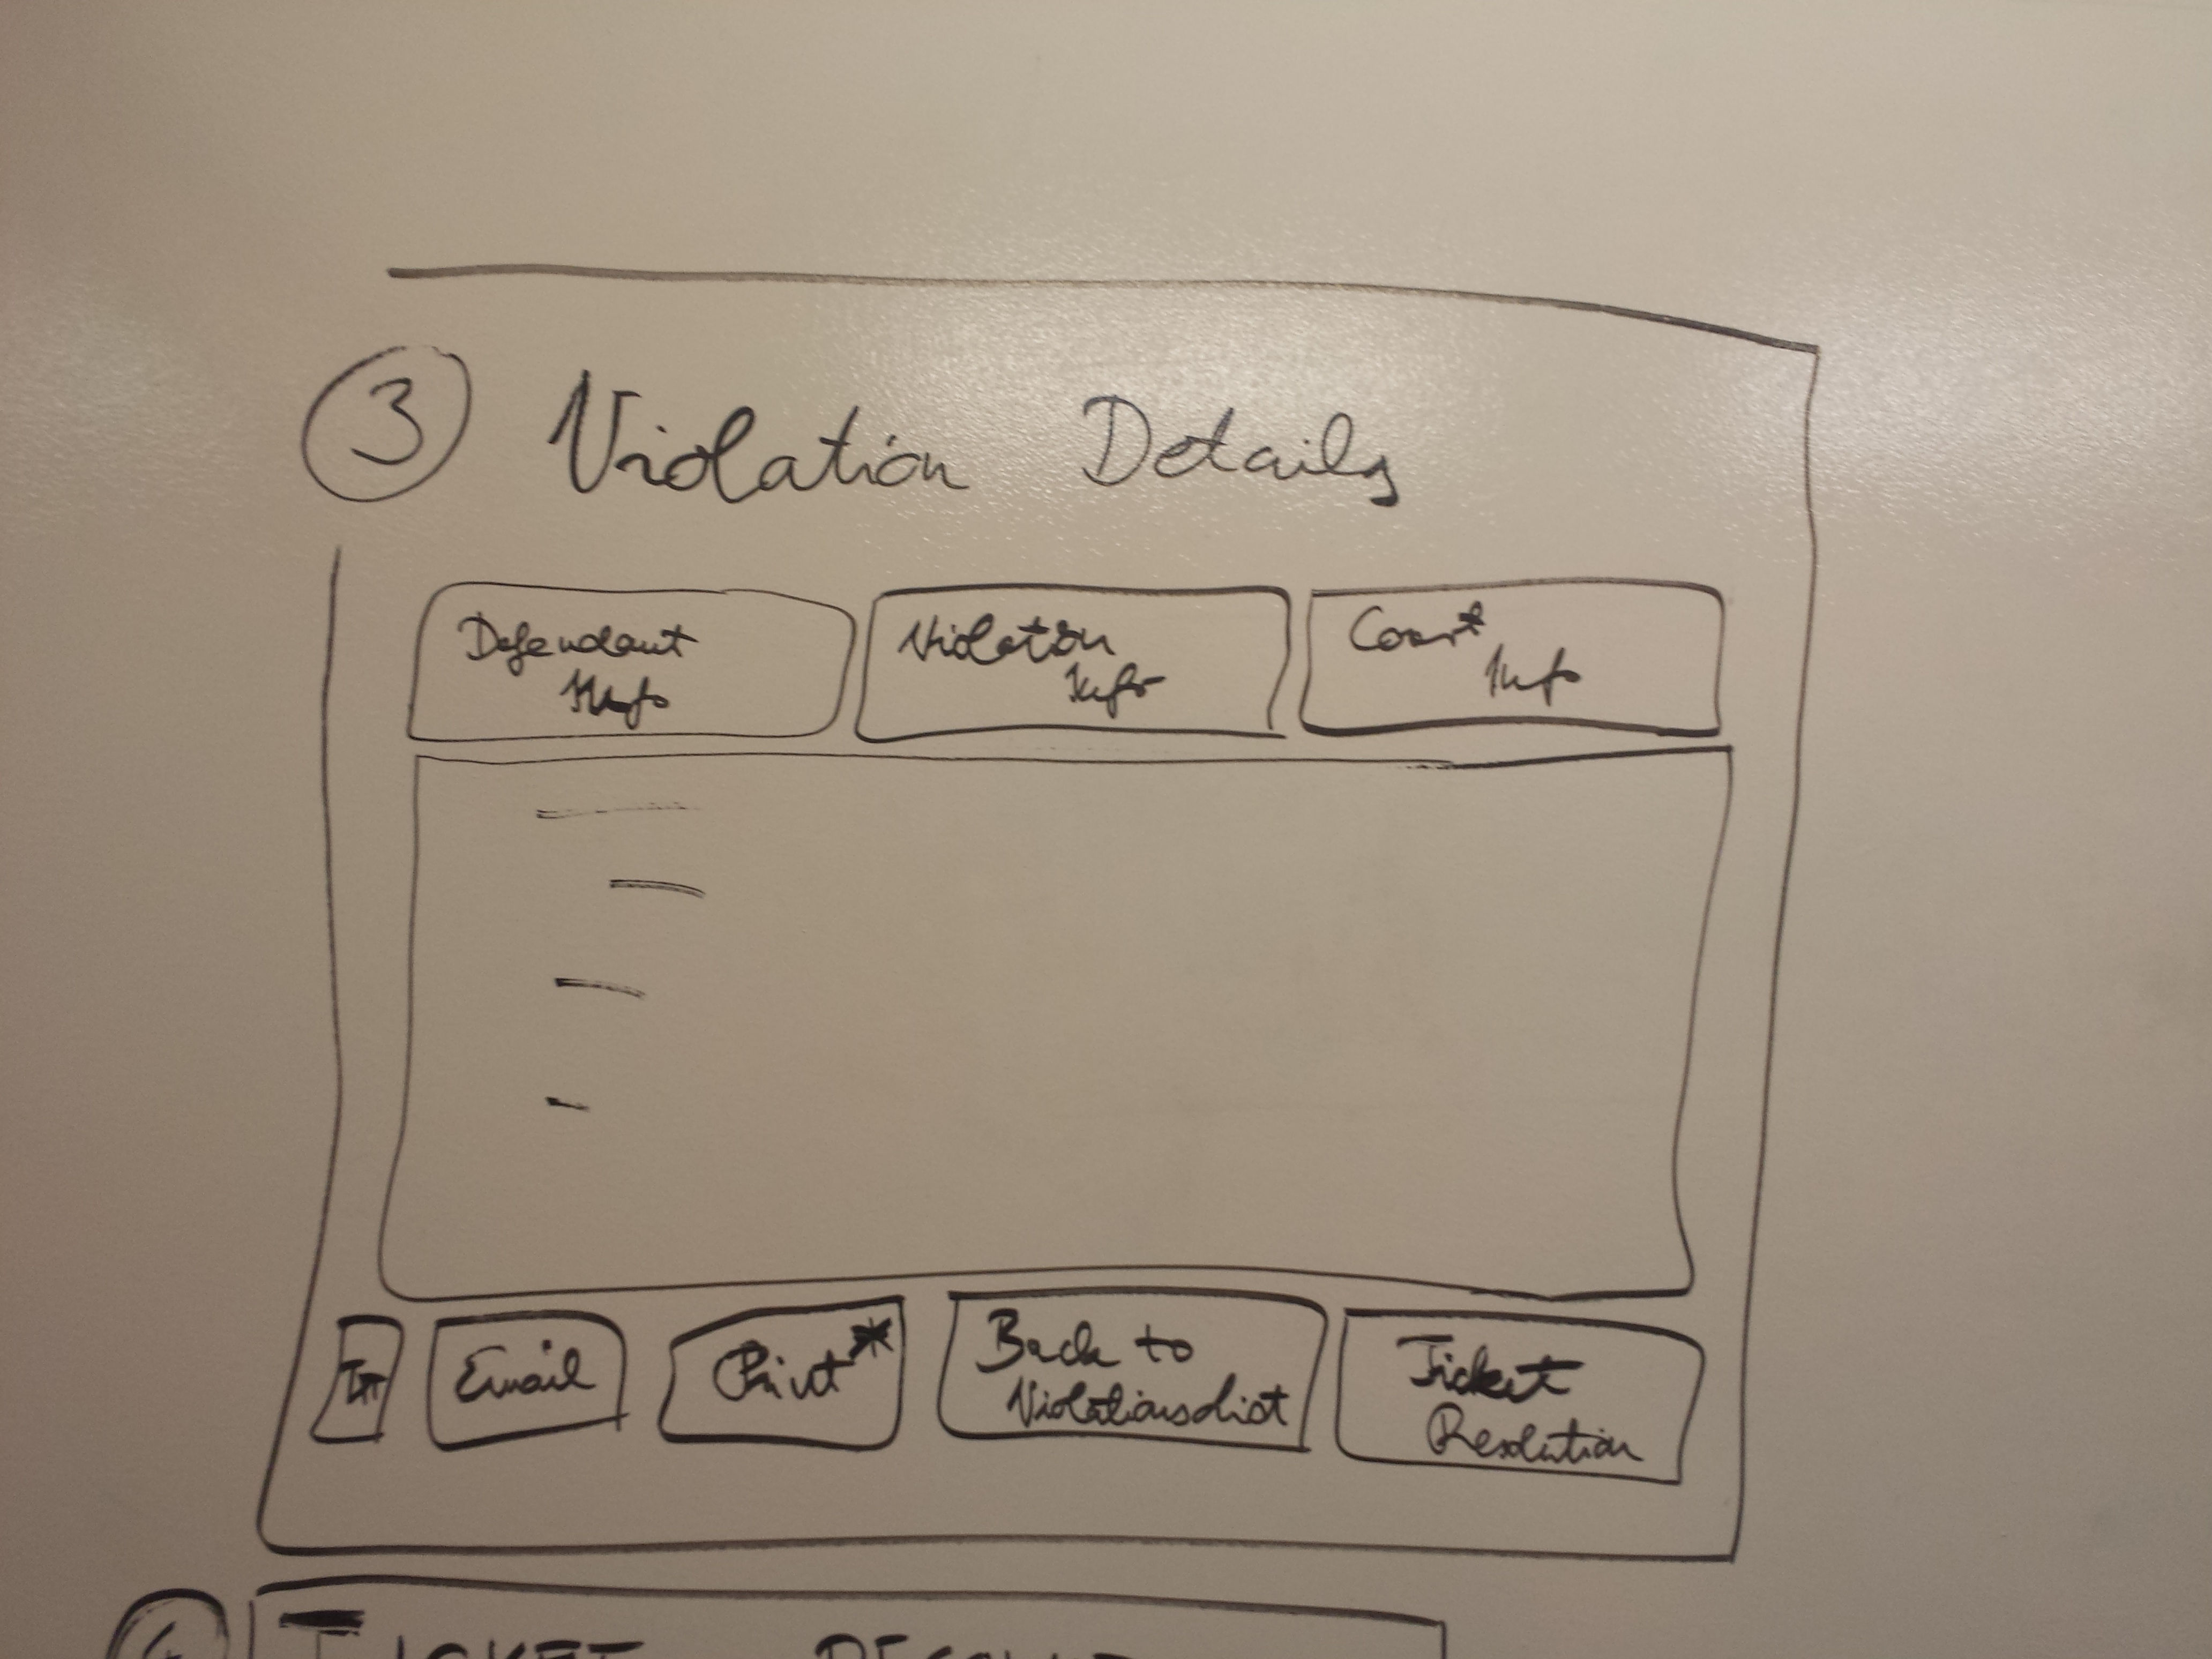 3 Violation Details
Defendant
Info
Violation
Info
Court
Info
Email
Print*
Back to
Violations List
Ticket
Resolution
TICKET